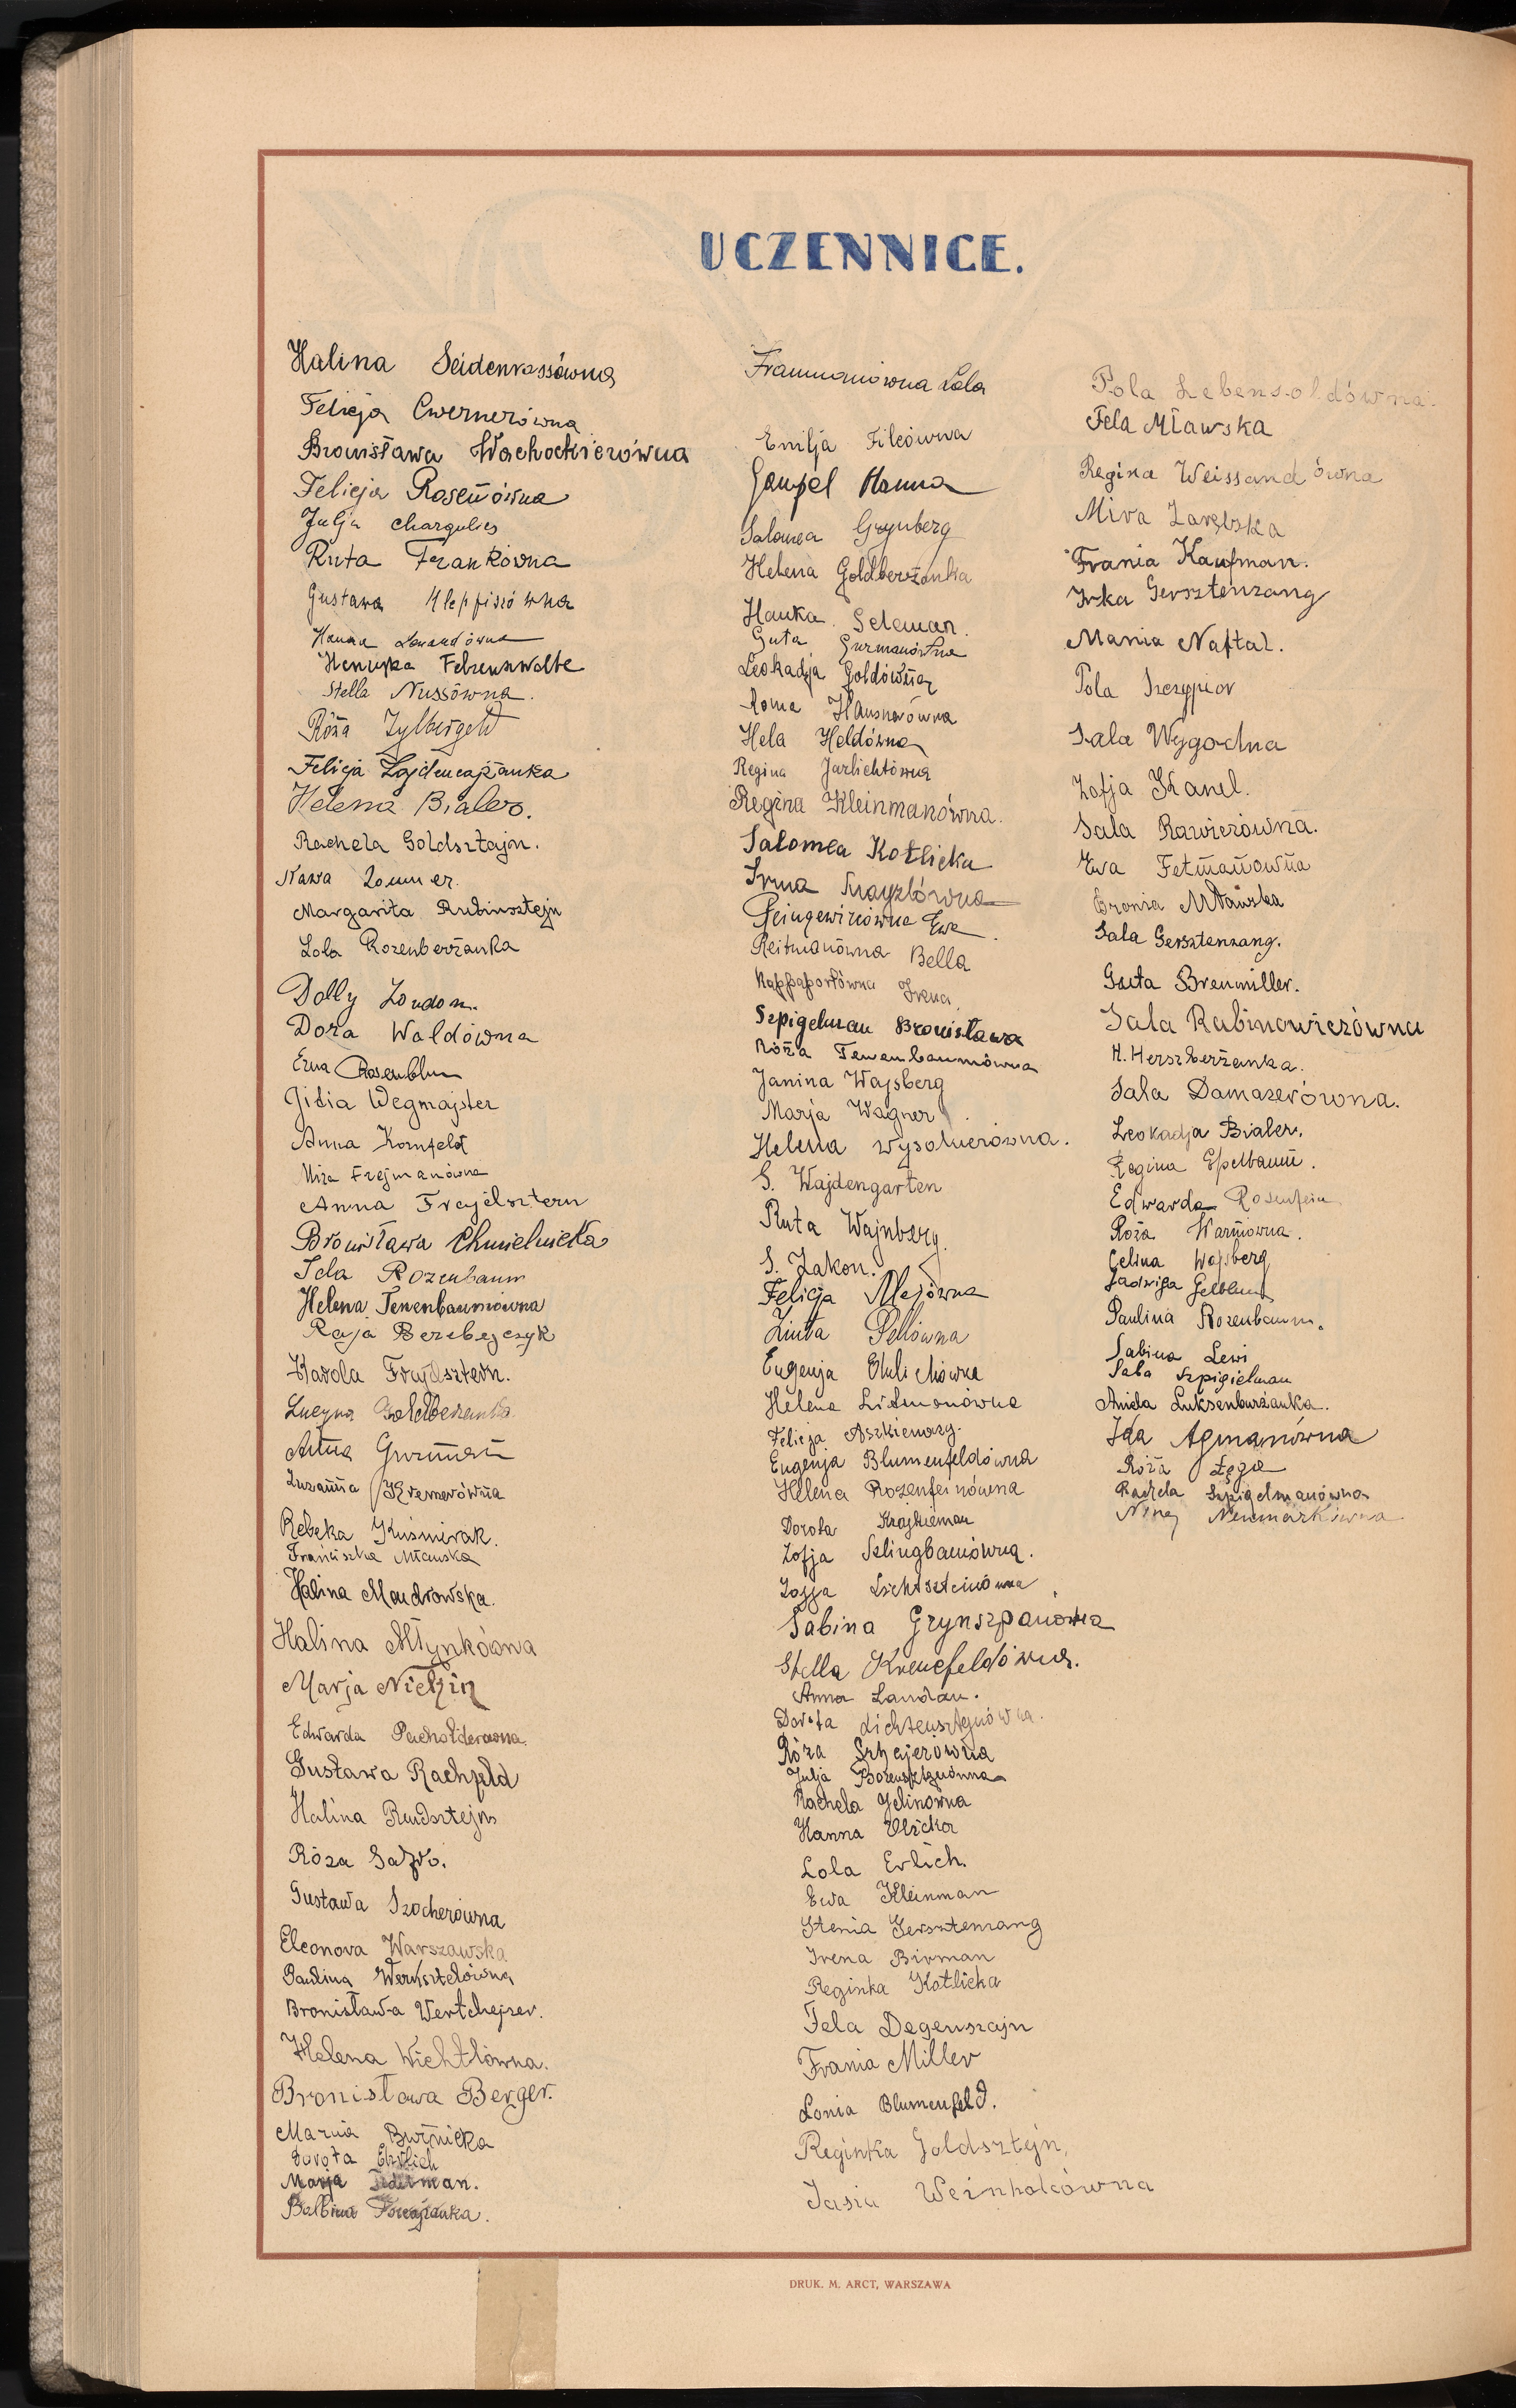 UCZENNICE.
Halina Seidenrossówna
Felicja Cwernerówna
Bronisława Wachockierówna
Felicja Rosenówna
Julja Chargulies
Ruta Frankówna
Gustawa Klepfiszówna
Hanna
Heniuśka Felzenwalbe
Stella Nussówna.
Róża Zylbergeld
Felicja Zajdencajżanka
Helena Bialer.
Rachela Goldsztajn.
Nawa Zommer.
Margarita Rubinsztejn
Lola Rozenberżanka
Dolly London.
Dora Waldówna
Erna Rosenblum
Gitia Wegmajster
Anna Kornfeld
Mira Frejmanówna
Anna Frajdsztern
Bronisława Chmielnicka
Ida Rozenbaum
Helena Tenenbaumówna
Raja Berebejczyk
Karola Frajdsztern.
Lucyna Goldberżanka
Anna Gurman
Zuzanna Kremerówna
Rebeka Kuśmirak.
Franciszka Mławska
Halina Mandrowska.
Halina Młynkówna
Marja Nietzin
Edwarda Pachołderówna.
Gustawa Rachfeld
Halina Rundsztejn
Róza
Gustawa Szocherówna
Eleonora Warszawska
Paulina Wernsztelówna
Bronisława Wertchejzer.
Helena Wichtlówna.
Bronisława Berger.
Marnia Burżnicka
Dorota Ehrlich
Marja Federman.
Balbina
Frammanówna Lola
Emilja Filcówna
Gampel Hanna
Salomea Grynberg
Helena Goldberżanka
Hanka Seleman.
Guta Gurmanówna
Leokadja Goldówna
Roma Hausnerówna
Hela Heldówna
Regina Jurlichtówna
Regina Kleinmanówna.
Salomea Kotlicka
Irma Majzlówna
Peingewircówna Ewa.
Reitmanówna Bella
Rappaportówna Irena
Szpigelman Bronisława
Róża Tenenbaumówna
Janina Wajsberg
Marja Wagner.
Helena Wysokierówna.
S. Wajdengarten
Ruta Wajnberg.
S. Zakon.
Felicja Majówna
Zinta Pellówna
Eugenja Ehrlichówna
Helena Lidmanówna
Felicja Aszkienazy.
Eugenja Blumenfeldówna
Helena Rozenfeinówna
Dorota Krojkieman
Zofja Szlingbaumówna.
Zofja Lichtszteinówna.
Sabina Grynszpanówna
Stella Krenefeldówna.
Anna Landau.
Dorota Lichtensztejnówna.
Róża Sztzajerówna
Julja Borensztejnówna
Rachela Jelinówna
Hanna Olicka
Lola Erlich.
Ewa Kleinman
Stenia Gersztenzang
Irena Birman
Reginka Kotlicka
Fela Degenszajn
Frania Miller
Lonia Blumenfeld.
Reginka Goldsztejn,
Jasia Weinholcówna
Pola Lebensoldówna.
Fela Mławska
Regina Weissandówna
Mira Zarębska
Frania Kaufman.
Irka Gersztenzang
Mania Naftal.
Pola Szczypior
Sala Wygodna
Zofja Kanel.
Sala Rawierówna.
Ewa Fetmanowna
Bronia Mławska
Sala Gersztenzang.
Guta Brenmiller.
Sala Rabinowiczówna
H. Herszberżanka.
Sala Damazerówna.
Leokadja Bialer.
Regina Epelbaum.
Edwarda Rosenfein
Róża Warmowna.
Celina Wajsberg
Jadwiga Gelblum
Paulina Rozenbaum.
Sabina Lewi
Saba Szpigielman
Aniela Luksenburżanka.
Ida Agmanówna
Róża Łęga
Rachela Szpigelmanówna
Nina Neumarkówna
DRUK. M. ARCT, WARSZAWA